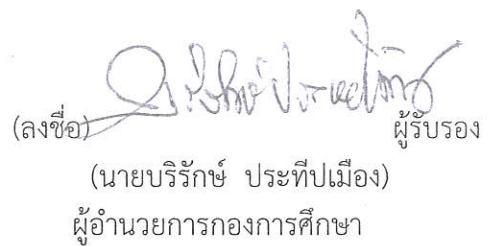 (ลงชื่อ) ผู้รับรอง
(นายบริรักษ์ ประทีปเมือง)
ผู้อำนวยการกองการศึกษา